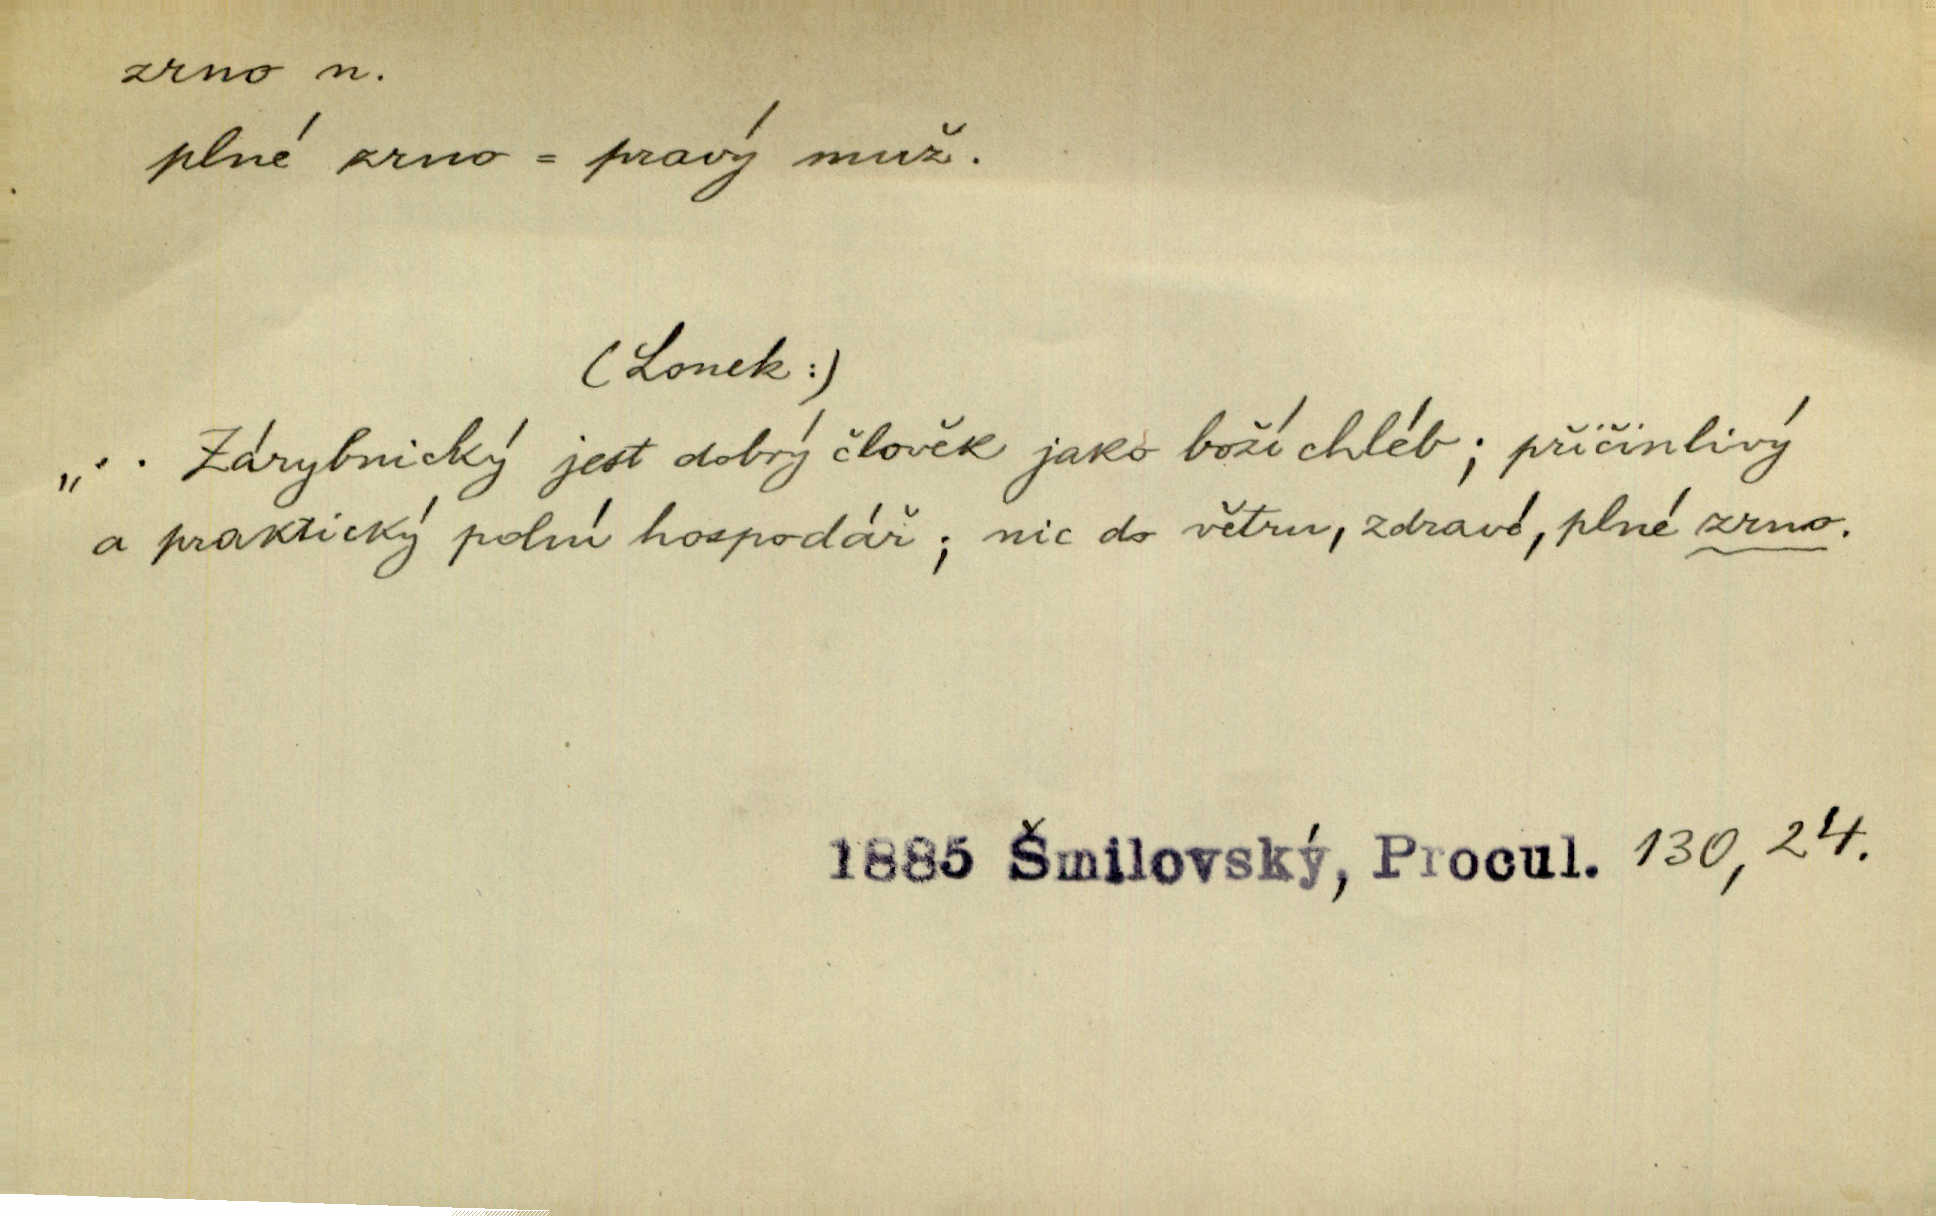 zrno n.
plné zrno = pravý muž.
(Lonek:)
„.. Zárybnický jest dobrý člověk jako boží chléb; přičinlivý
a praktický polní hospodář; nic do větru, zdravé, plné zrno.
1885 Šmilovský, Procul. 130, 24.